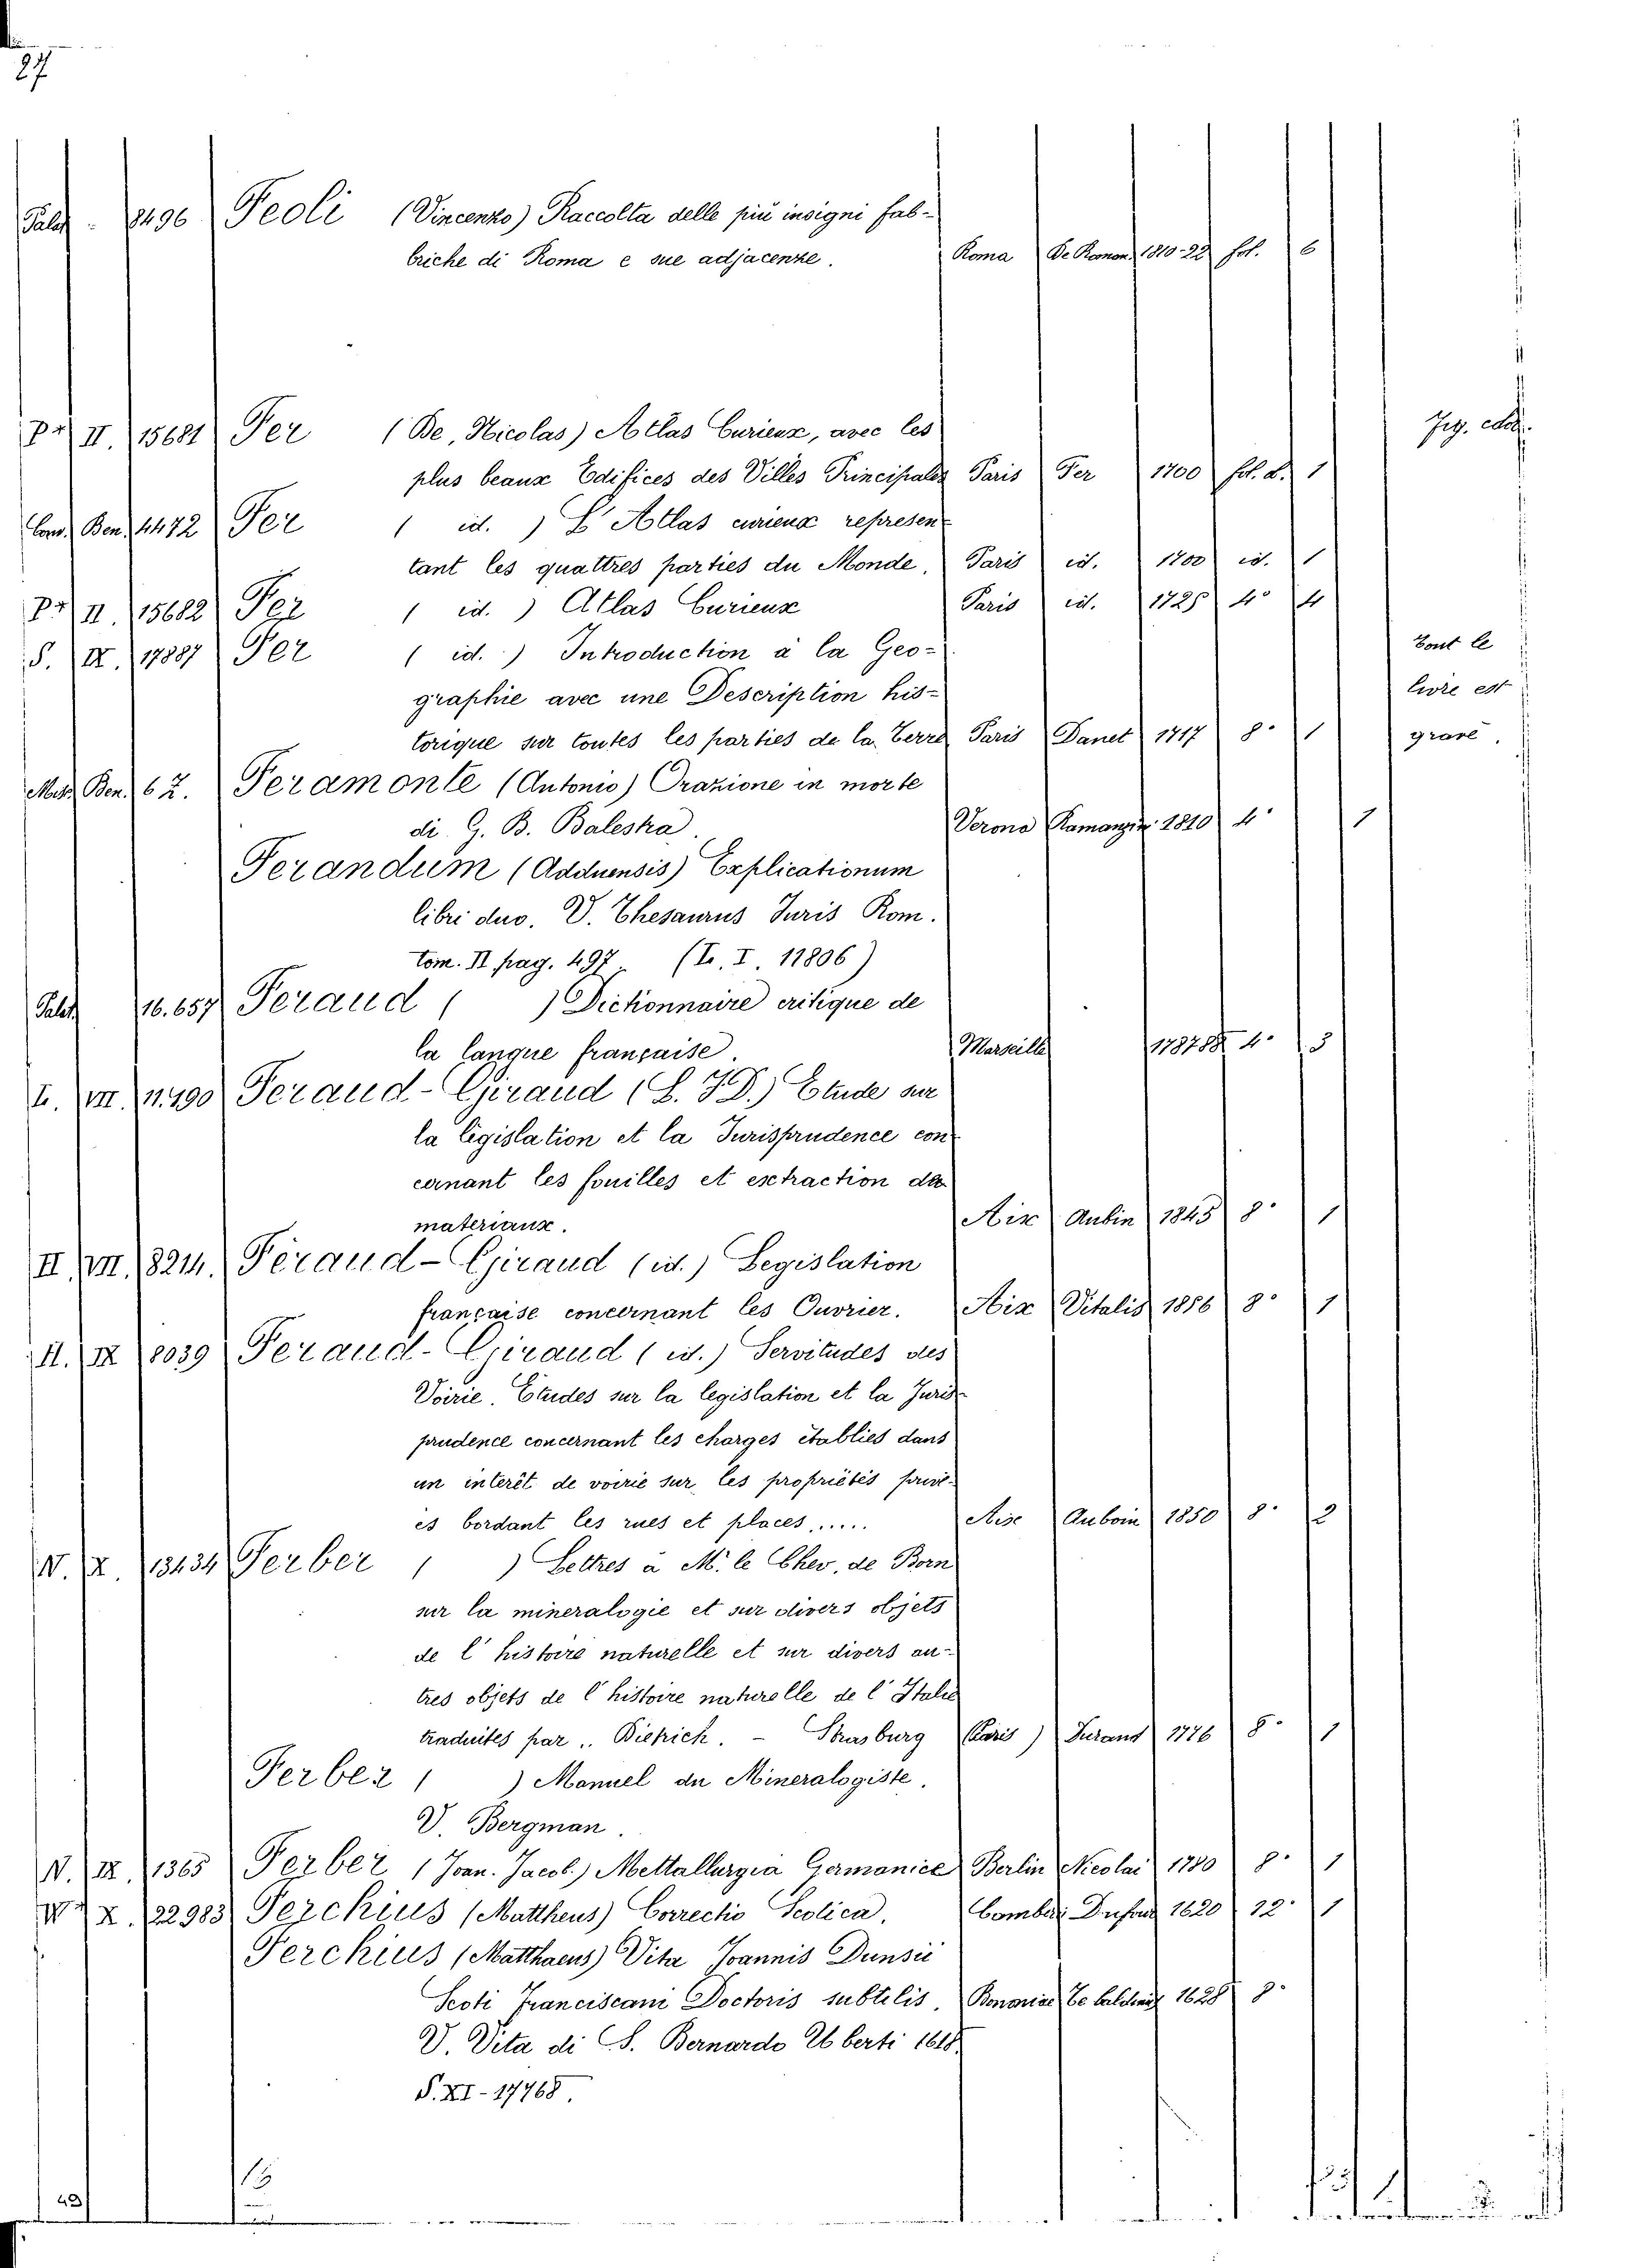 27
Palef - 8496 Feoli (Vincenzo) Raccolta delle più insigni fab-
briche di Roma e sue adjacenze. Roma De Roman. 1810-22 fol. 6
Pr. II. 15681 Fer (De, Nicolas) Atlas Curieux, avec les
plus beaux Edifices des Villes Principales Paris Fer 1700 fol. 1
Ben. 4472 Fer ( id. ) L'Atlas curieux represen-
tant les quattres parties du Monde. Paris id. 1700 id. 1
Pr. II. 15682 Fer ( id. ) Atlas Curieux Paris id. 1725 4° 4
S. IX. 17887 Fer ( id. ) Introduction à la Geo-
graphie avec une Description his-
torique sur toutes les parties de la Terre Paris Danet 1717 8° 1
Tout le
livre est
gravé.
Ben. 62. Feramonte (Antonio) Orazione in morte
di G. B. Balestra. Verona Ramanzin. 1810 4° 1
Ferandum (Adduensis) Explicationum
libri duo. V. Thesaurus Juris Rom.
tom. II pag. 497. (L. I. 11806)
16.657 Feraud ( ) Dictionnaire critique de
la langue française. Marseille 178788 4° 3
L. VII. 11.490 Feraud-Giraud (L. J D.) Etude sur
la législation et la Jurisprudence con-
cernant les fouilles et extraction de
materiaux. Aix Aubin 1845 8° 1
II. VII. 8214. Féraud-Giraud (id.) Legislation
française concernant les Ouvrier. Aix Vitalis 1856 8° 1
II. IX 8039 Feraud-Giraud (id.) Servitudes des
Voirie. Etudes sur la legislation et la Juris-
prudence concernant les charges établies dans
un interêt de voirie sur les propriétés privé-
es bordant les rues et places ..... Aix Auboin 1850 8° 2
V. X. 13434 Ferber ( ) Lettres à M. le Chev. de Born
sur la mineralogie et sur divers objets
de l'histoire naturelle et sur divers au-
tres objets de l'histoire naturelle de l'Italie
traduites par .. Dietrich. - Strasburg (Paris) Durand 1776 8° 1
Ferber ( ) Manuel du Mineralogiste.
V. Bergman.
V. IX. 1365 Ferber (Joan. Jacob.) Mettallurgia Germanica Berlin Nicolai 1780 8° 1
X. 22983 Ferchius (Mattheus) Correctio Scolica. Dufour 1620 12° 1
Ferchius (Matthaeus) Vita Joannis Dunsii
Scoti Franciscani Doctoris subtilis. Bononiae 1628 8°
V. Vita di S. Bernardo Uberti 1618
S. XI - 17768.